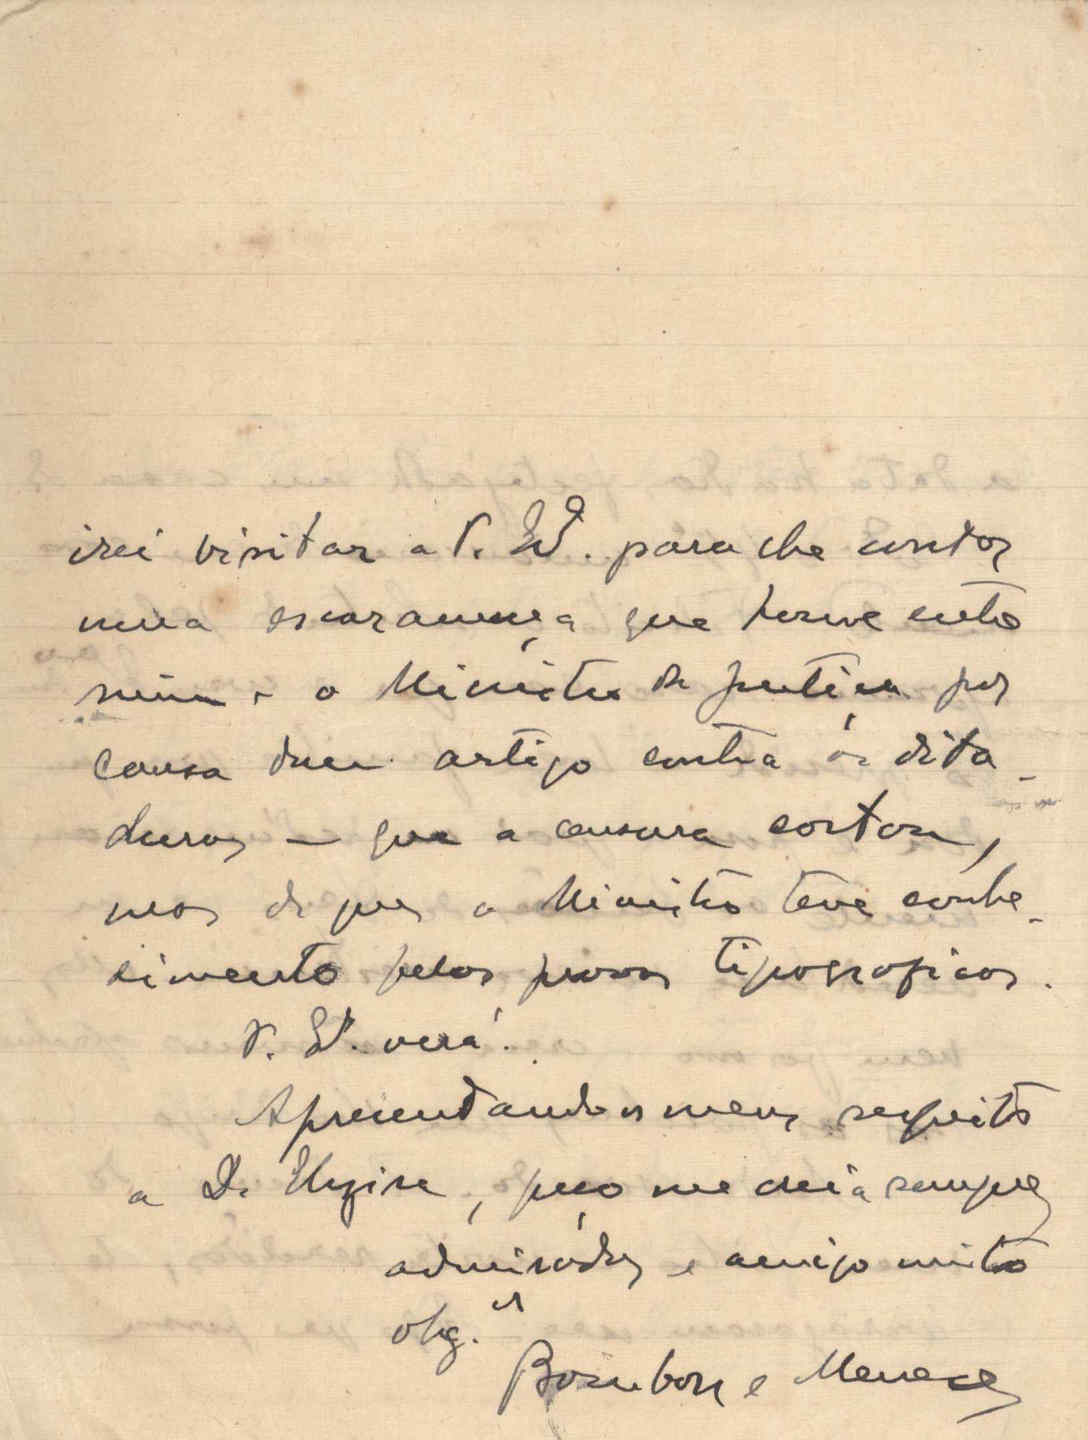 irei visitar a V. Ex.ª para lhe contar
uma escaramuça que houve entre
mim e o Ministro da Justiça por
causa dum artigo contra as dita-
duras — que a censura cortou,
mas de que o Ministro teve conhe-
cimento pelas provas tipograficas.
V. Ex.ª verá.
Apresentando os meus respeitos
a D. Elzira, peço me creia sempre
admirador e amigo muito
obg.º
Bourbon e Meneses